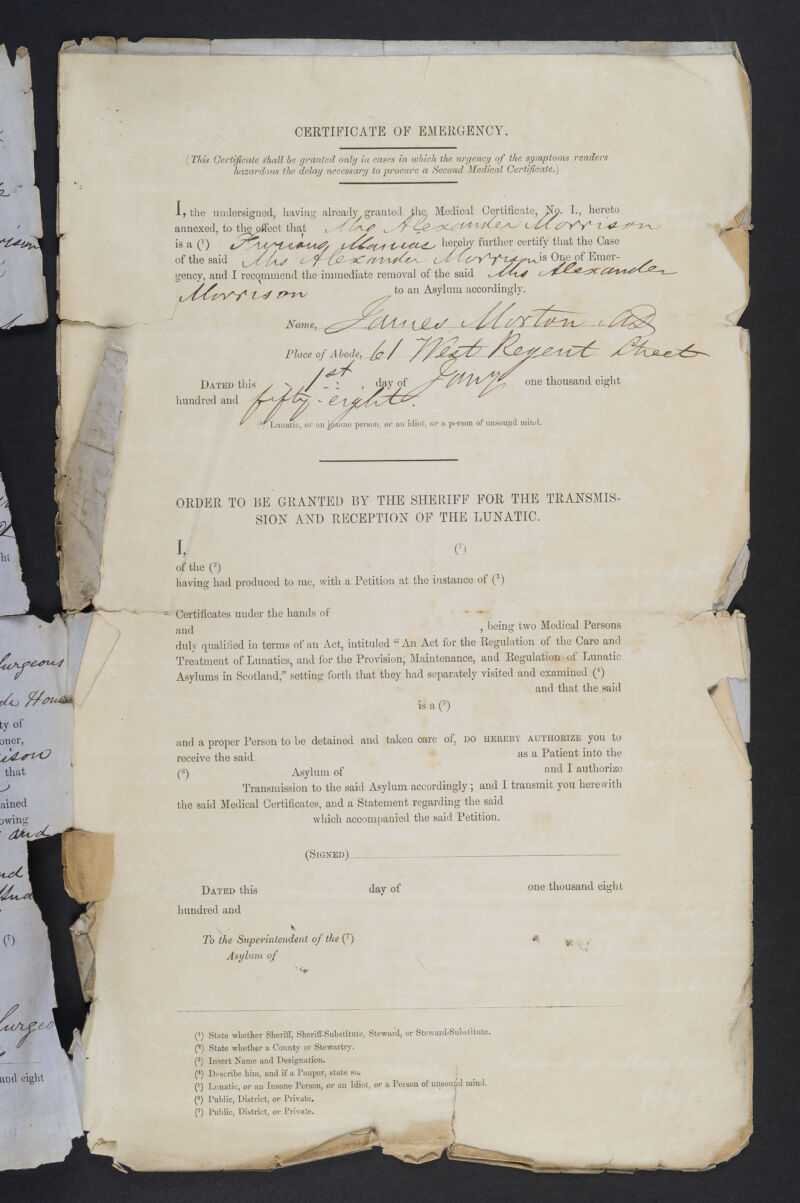 CERTIFICATE OF EMERGENCY.
(This Certificate shall be granted only in cases in which the urgency of the symptoms renders
hazardous the delay necessary to procure a Second Medical Certificate.)
I, the undersigned, having already granted the Medical Certificate, No. I., hereto
annexed, to the effect that Mrs Alexander Morrison
is a (¹) Furious Maniac hereby further certify that the Case
of the said Mrs Alexander Morrison is One of Emer-
gency, and I recommend the immediate removal of the said Mrs Alexander
Morrison to an Asylum accordingly.
Name, James Morton MD
Place of Abode, 61 West Regent Street
DATED this 1st day of Jany one thousand eight
hundred and fifty-eight.
(¹) Lunatic, or an insane person, or an idiot, or a person of unsound mind.
ORDER TO BE GRANTED BY THE SHERIFF FOR THE TRANSMIS-
SION AND RECEPTION OF THE LUNATIC.
I, (¹)
of the (²)
having had produced to me, with a Petition at the instance of (³)
Certificates under the hands of
and , being two Medical Persons
duly qualified in terms of an Act, intituled “An Act for the Regulation of the Care and
Treatment of Lunatics, and for the Provision, Maintenance, and Regulation of Lunatic
Asylums in Scotland,” setting forth that they had separately visited and examined (⁴)
and that the said
is a (⁵)
and a proper Person to be detained and taken care of, DO HEREBY AUTHORIZE you to
receive the said as a Patient into the
(⁶) Asylum of and I authorize
Transmission to the said Asylum accordingly; and I transmit you herewith
the said Medical Certificates, and a Statement regarding the said
which accompanied the said Petition.
(SIGNED)
DATED this day of one thousand eight
hundred and
To the Superintendent of the (⁷)
Asylum of
(¹) State whether Sheriff, Sheriff-Substitute, Steward, or Steward-Substitute.
(²) State whether a County or Stewartry.
(³) Insert Name and Designation.
(⁴) Describe him, and if a Pauper, state so.
(⁵) Lunatic, or an Insane Person, or an Idiot, or a Person of unsound mind.
(⁶) Public, District, or Private.
(⁷) Public, District, or Private.
ht
urgeons
ty of
oner,
ison
that
ained
owing
and
(⁷)
and eight